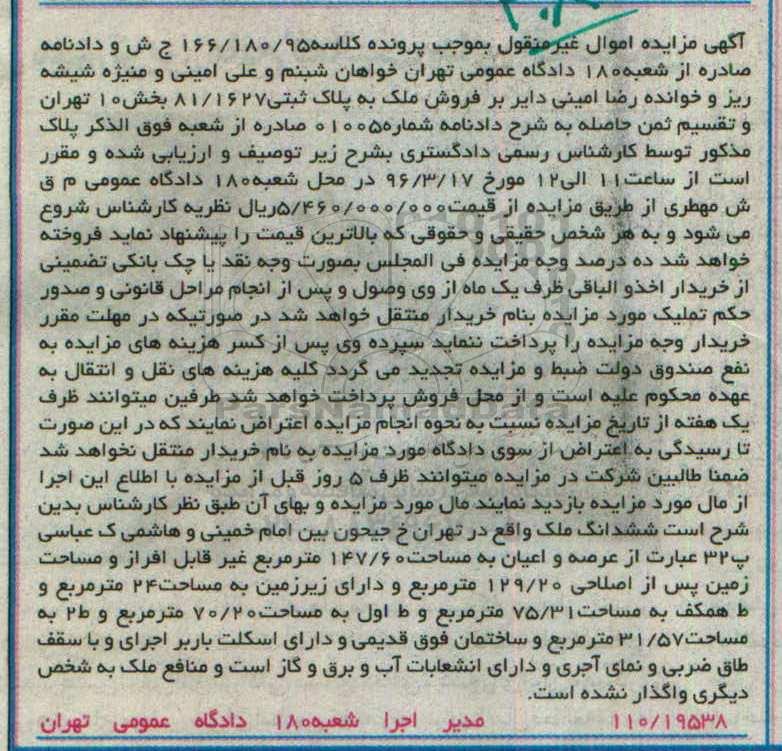 آگهی مزایده اموال غیرمنقول بموجب پرونده کلاسه۱۶۶/۱۸۰/۹۵ ج ش و دادنامه
صادره از شعبه۱۸۰ دادگاه عمومی تهران خواهان شبنم و علی امینی و منیژه شیشه
ریز و خوانده رضا امینی دایر بر فروش ملک به پلاک ثبتی۸۱/۱۶۲۷ بخش۱۰ تهران
و تقسیم ثمن حاصله به شرح دادنامه شماره۰۱۰۰۵ صادره از شعبه فوق الذکر پلاک
مذکور توسط کارشناس رسمی دادگستری بشرح زیر توصیف و ارزیابی شده و مقرر
است از ساعت۱۱ الی۱۲ مورخ ۹۶/۳/۱۷ در محل شعبه۱۸۰ دادگاه عمومی م ق
ش مهطری از طریق مزایده از قیمت۵/۴۶۰/۰۰۰/۰۰۰ریال نظریه کارشناس شروع
می شود و به هر شخص حقیقی و حقوقی که بالاترین قیمت را پیشنهاد نماید فروخته
خواهد شد ده درصد وجه مزایده فی المجلس بصورت وجه نقد یا چک بانکی تضمینی
از خریدار اخذو الباقی ظرف یک ماه از وی وصول و پس از انجام مراحل قانونی و صدور
حکم تملیک مورد مزایده بنام خریدار منتقل خواهد شد در صورتیکه در مهلت مقرر
خریدار وجه مزایده را پرداخت ننماید سپرده وی پس از کسر هزینه های مزایده به
نفع صندوق دولت ضبط و مزایده تجدید می گردد کلیه هزینه های نقل و انتقال به
عهده محکوم علیه است و از محل فروش پرداخت خواهد شد طرفین میتوانند ظرف
یک هفته از تاریخ مزایده نسبت به نحوه انجام مزایده اعتراض نمایند که در این صورت
تا رسیدگی به اعتراض از سوی دادگاه مورد مزایده به نام خریدار منتقل نخواهد شد
ضمنا طالبین شرکت در مزایده میتوانند ظرف ۵ روز قبل از مزایده با اطلاع این اجرا
از مال مورد مزایده بازدید نمایند مال مورد مزایده و بهای آن طبق نظر کارشناس بدین
شرح است ششدانگ ملک واقع در تهران خ جیحون بین امام خمینی و هاشمی ک عباسی
پ۳۲ عبارت از عرصه و اعیان به مساحت۱۴۷/۶۰ مترمربع غیر قابل افراز و مساحت
زمین پس از اصلاحی ۱۲۹/۲۰ مترمربع و دارای زیرزمین به مساحت۲۴ مترمربع و
ط همکف به مساحت۷۵/۳۱ مترمربع و ط اول به مساحت۷۰/۲۰ مترمربع و ط۲ به
مساحت۳۱/۵۷ مترمربع و ساختمان فوق قدیمی و دارای اسکلت باربر اجرای و با سقف
طاق ضربی و نمای آجری و دارای انشعابات آب و برق و گاز است و منافع ملک به شخص
دیگری واگذار نشده است.
۱۱۰/۱۹۵۳۸ مدیر اجرا شعبه۱۸۰ دادگاه عمومی تهران
ParsNamadData